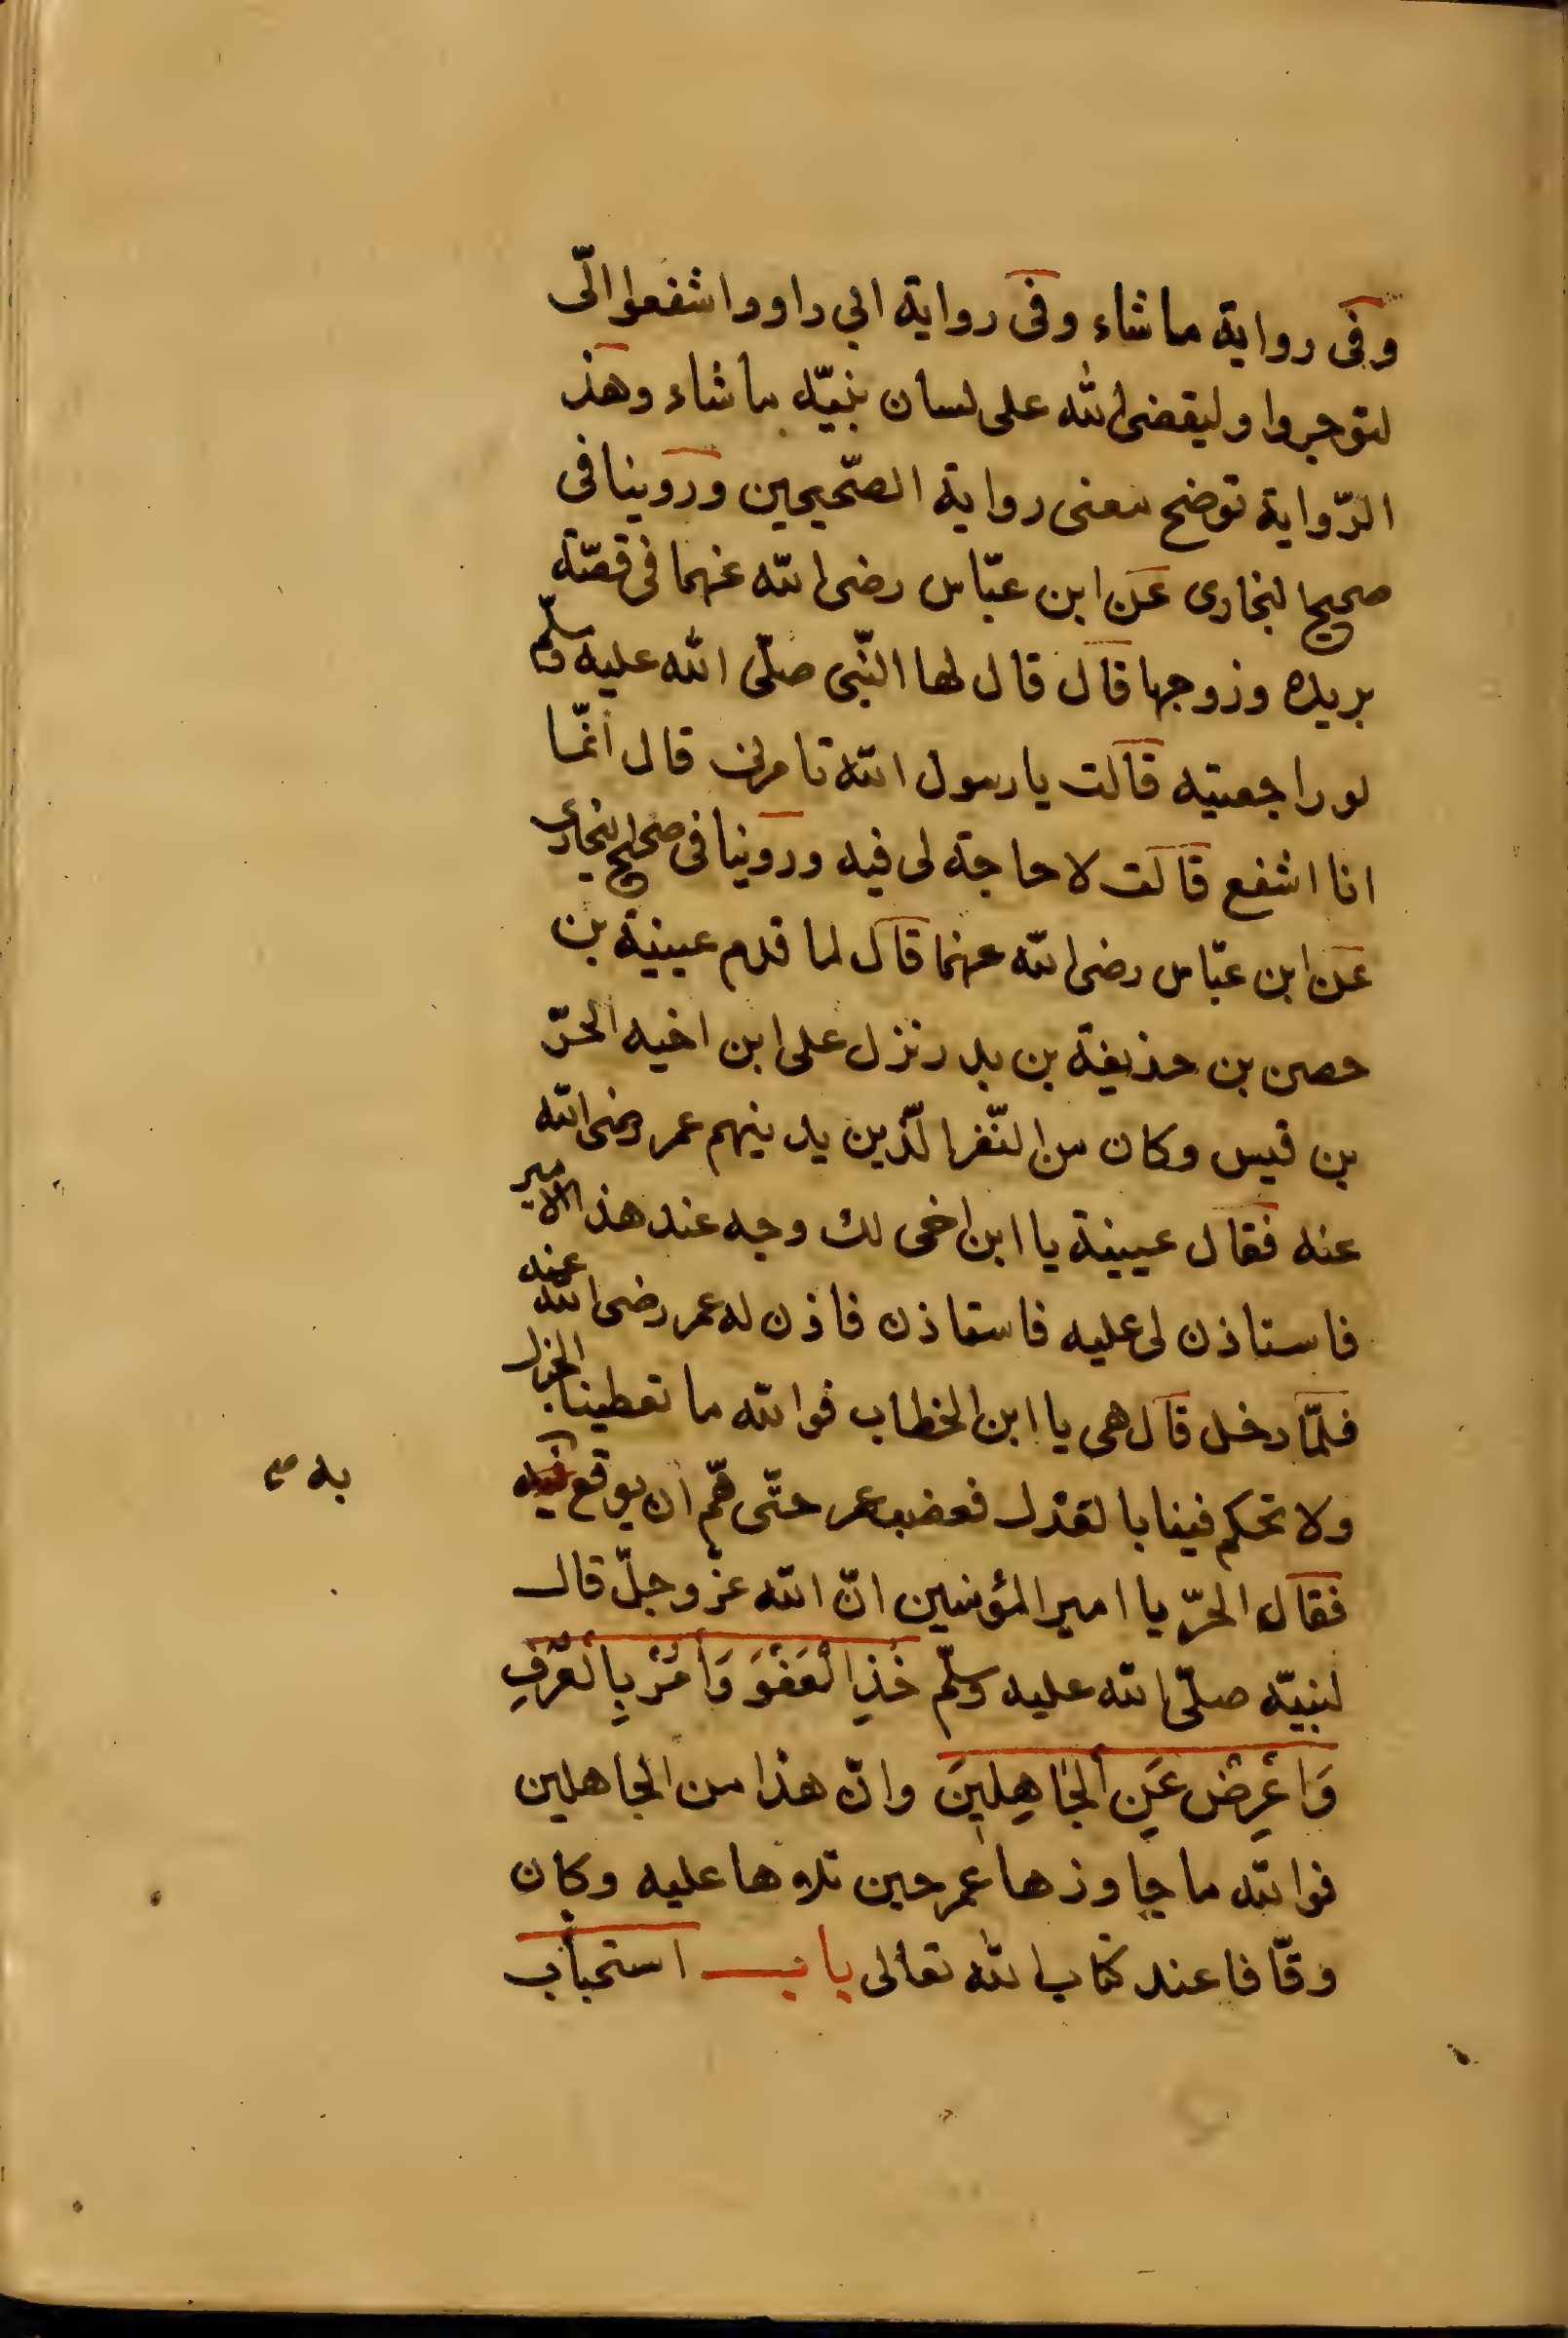 وفى رواية ما شاء وفى رواية ابي داوود اشفعوا الّى
لتوجروا وليقضى الله على لسان نبيّه ما شاء وهذ
الرّواية توضح معنى رواية الصّحيحين وروينا فى
صحيح البخارى عن ابن عبّاس رضى الله عنهما فى قصّة
بريده وزوجها قال قال لها النّبى صلّى الله عليه وسلّم
لو راجعتيه قالت يا رسول الله تامرنى قال انّما
انا اشفع قالت لا حاجة لى فيه وروينا فى صحيح البخارى
عن ابن عبّاس رضى الله عنهما قال لما قدم عيينة بن
حصن بن حذيفة بن بدر نزل على ابن اخيه الحرّ
بن قيس وكان من النّفر الّذين يدنيهم عمر رضى الله
عنه فقال عيينة يا ابن اخى لك وجه عند هذا الامير
فاستاذن لى عليه فاستاذن فاذن له عمر رضى الله عنه
فلمّا دخل قال هى يا ابن الخطاب فوالله ما تعطينا الجزل
ولا تحكم فينا بالعدل فغضب عمر حتّى همّ ان يوقع فيه
به صح
فقال الحرّ يا امير المؤمنين انّ الله عزّ وجلّ قال
لنبيّه صلّى الله عليه وسلّم خُذِ الْعَفْوَ وَأْمُرْ بِالْعُرْفِ
وَاعْرِضْ عَنِ الْجَاهِلِينَ وانّ هذا من الجاهلين
فوالله ما جاوزها عمر حين تلاها عليه وكان
وقّافا عند كتاب الله تعالى باب استحباب